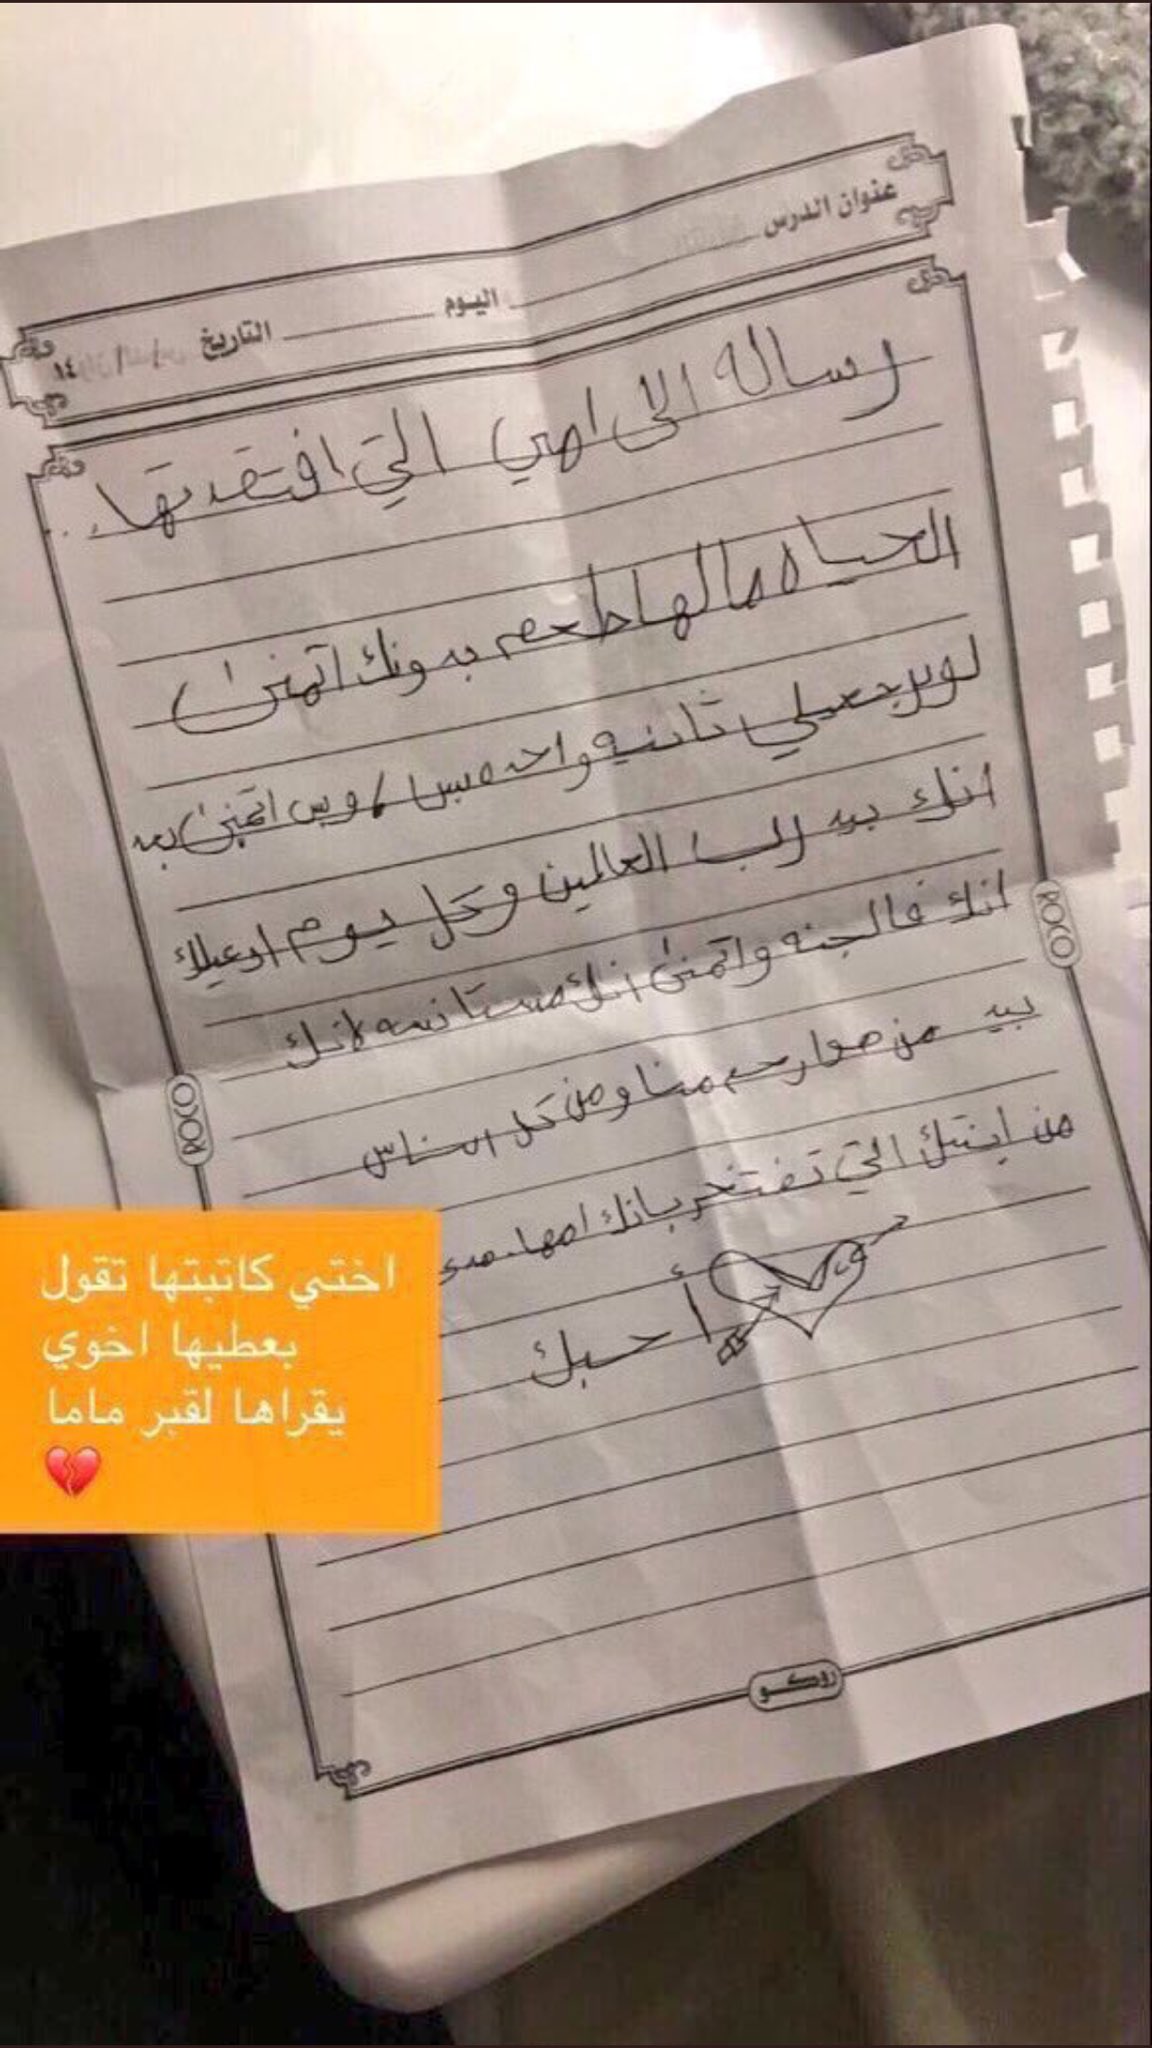 عنوان الدرس
اليوم
التاريخ / / ١٤
رساله الى امي التي افتقدتها..
الحياه مالها طعم بدونك اتمنى
لو يرجعلي ثانيه واحده بس / وبس اتمنى بعد
انك بيد رب العالمين وكل يوم ادعيلك
انك فالجنه واتمنى انك مستانسه لانك
بيد من هو ارحم منا ومن كل الناس
من ابنتك التي تفتخر بانك امها.
أحبك
ROCO
ROCO
اختي كاتبتها تقول
بعطيها اخوي
يقراها لقبر ماما
💔
روكو